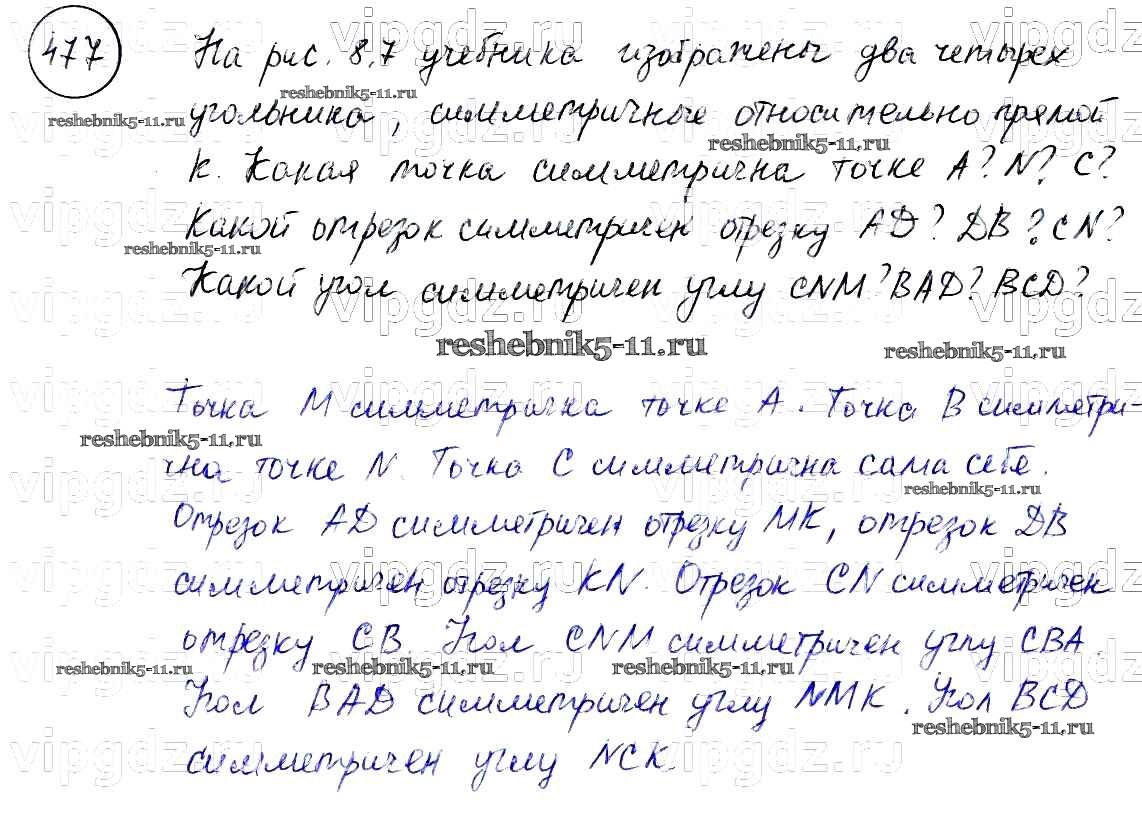 477 На рис. 8.7 учебника изображены два четырех
угольника, симметричные относительно прямой
k. Какая точка симметрична точке A? N? C?
Какой отрезок симметричен отрезку AD? DB? CN?
Какой угол симметричен углу CNM? BAD? BCD?
Точка M симметрична точке A. Точка B симметри-
чна точке N. Точка C симметрична сама себе.
Отрезок AD симметричен отрезку MK, отрезок DB
симметричен отрезку KN. Отрезок CN симметричен
отрезку CB. Угол CNM симметричен углу CBA.
Угол BAD симметричен углу NMK. Угол BCD
симметричен углу NCK.
reshebnik5-11.ru
vipgdz.ru